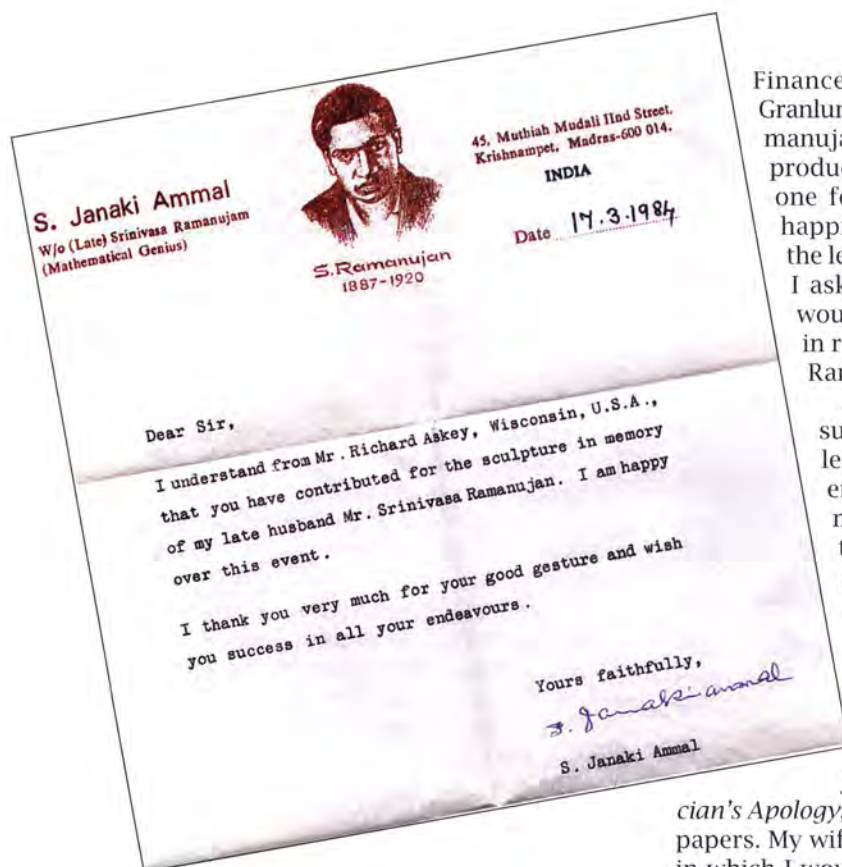 S. Janaki Ammal
W/o (Late) Srinivasa Ramanujam
(Mathematical Genius)
S. Ramanujan
1887-1920
45, Muthiah Mudali IInd Street,
Krishnampet, Madras-600 014.
INDIA
Date 17.3.1984
Dear Sir,
I understand from Mr. Richard Askey, Wisconsin, U.S.A.,
that you have contributed for the sculpture in memory
of my late husband Mr. Srinivasa Ramanujan. I am happy
over this event.
I thank you very much for your good gesture and wish
you success in all your endeavours.
Yours faithfully,
S. Janaki ammal
S. Janaki Ammal
Finance
Granlun
manuja
produc
one fo
happi
the le
I ask
wou
in r
Ra
su
le
e
cian's Apology,
papers. My wif
in which I wou